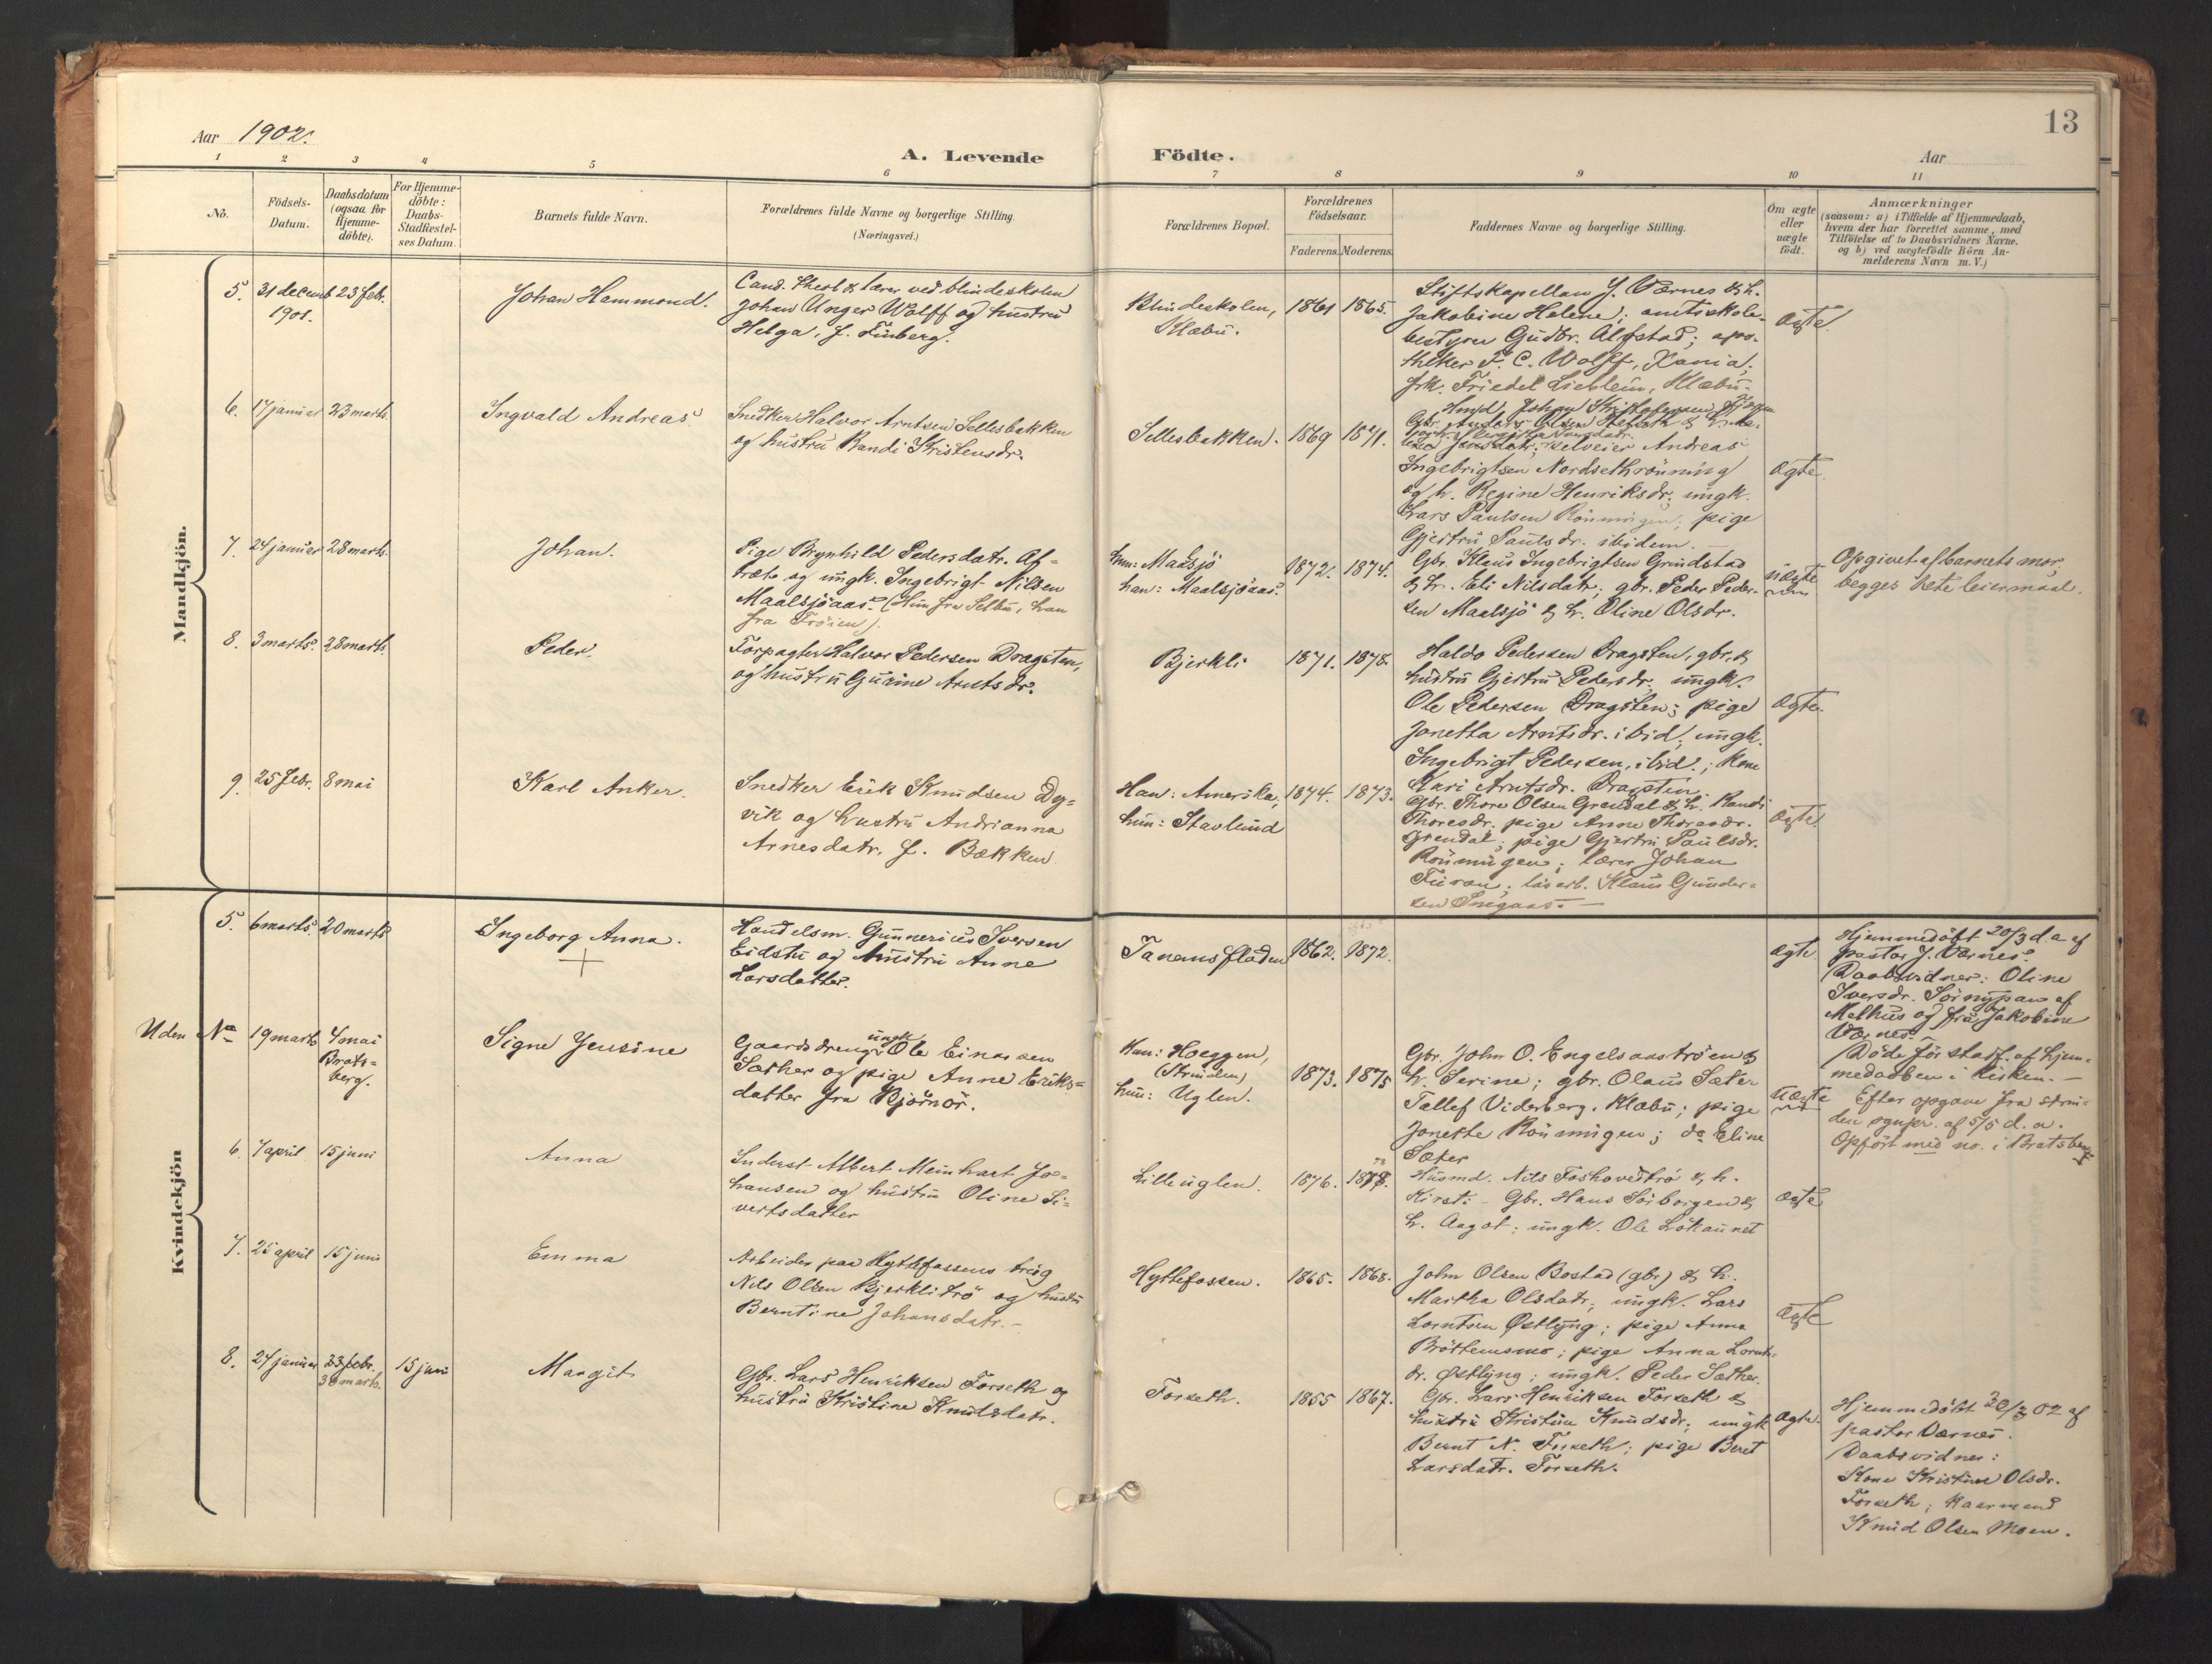 13
Aar 1902.
A. Levende Födte.
Aar
1 2 3 4 5 6 7 8 9 10 11
No.
Födsels-
Datum.
Daabsdatum
(ogsaa for
Hjemme-
döbte).
For Hjemme-
döbte:
Daabs-
Stadfæstel-
ses Datum.
Barnets fulde Navn.
Forældrenes fulde Navne og borgerlige Stilling.
(Næringsvei.)
Forældrenes Bopæl.
Forældrenes
Födselsaar.
Faderens. Moderens.
Faddernes Navne og borgerlige Stilling.
Om ægte
eller
uægte
födt.
Anmærkninger
(saasom: a) i Tilfælde af Hjemmedaab,
hvem der har forrettet samme, med
Tilföielse af to Daabsvidners Navne.
og b) ved uægtefödte Börn An-
melderens Navn m. V.)
Mandkjön.
5. 31 decemb 23 febr.
1901.
Johan Hammond.
Cand. theol & lærer ved blindeskolen
Johan Unger Wolff og hustru
Helga, f. Finberg.
Blindeskolen,
Klæbu.
1861 1865.
Stiftskapellan J. Værnes & h.
Jakobine Helene; amtsskole-
bestyrer Gudbr. Alfstad; apo-
theker F. C. Wolff, Xania;
frk. Friedel Lieblein, Klæbu.
ægte
6. 17 januar 23 marts.
Ingvald Andreas
Snedker Halvor Arntsen Sellesbakken
og hustru Randi Kristensdr.
Sellesbakken.
1869 1871.
Gbr. Anders Olsen
Jensdatr; selveier Andreas
Ingebrigtsen Nordsethrönning
og h. Regine Henriksdr. ungk.
Lars Paulsen Rönningen; pige
Gjertru Paulsdr. ibidem.
ægte
7. 24 januar 28 marts.
Johan.
Pige Brynhild Pedersdatr. Af-
træt og ungk. Ingebrigt Nilsen
Maalsjöaas. (Hun fra Selbu, han
fra Fröien).
hun: Maalsjö
han: Maalsjöaas.
1872. 1874.
Gbr. Klaus Ingebrigtsen Grindstad
& h. Eli Nilsdatr; gbr. Peder Peder-
sen Maalsjö & h. Oline Olsdr.
uægte
Opgivet af barnets mor,
begges 1ste leiermaal.
8. 3 marts. 28 marts.
Peder.
Forpagter Halvor Pedersen Dragsten,
og hustru Gurine Arntsdr.
Bjerkli
1871. 1878.
Haldo Pedersen Dragsten, gbr, &
hustru Gjertru Pedersdr, ungk.
Ole Pedersen Dragsten; pige
Jonetta Arntsdr. ibid; ungk.
Ingebrigt Pedersen, ibid.; kone
Kari Arntsdr. Dragsten
ægte.
9. 25 febr. 8 mai
Karl Anker.
Snedker Erik Knudsen Dy-
vik og hustru Andrianna
Arnesdatr. f. Bækken
Han: Amerika,
hun: Stavlund
1874. 1873.
Gbr. Thore Olsen Grendal & h. Randi
Thoresdr. pige Anne Thoresdr.
Grendal; pige Gjertru Paulsdr.
Rönningen; lærer Johan
Furan; løsarb. Klaus Gunder-
sen Snegaas.
ægte.
Kvindekjön
5. 6 marts. 20 marts
Ingeborg Anna.
+
Handelsm. Gunnerius Iversen
Eidstu og hustru Anne
Larsdatter.
Tanemsfladen
1862. 1872.
ægte.
Hjemmedöbt 20/3 d. a. af
pastor J. Værnes.
Daabsvidner: Oline
Iversdr. Sörnypan af
Melhus og fru Jakobine
Værnes.
Döde för stadf. af hjem-
medaaben i kirken.
Uden No 19 marts 4 mai
Brats-
berg.
Signe Jensine
ungk
Gaardsdreng Ole Einarsen
Sæther og pige Anne Eriks-
datter fra Björnör.
han: Hoeggen,
(Strinden)
hun: Uglen.
1873. 1875
Gbr. John O. Engelsaaströen &
h. Serine; gbr. Olaus Sæter
Tallef Viderberg. Klæbu; pige
Jonette Rönningen; do Eline
Sæter
uægte
Efter opgave fra strin-
den sognpr. af 5/5 d. a.
Opfört med no. i Bratsberg
6. 7 april 15 juni
Anna
Inderst Albert Meinhart Jo-
hansen og hustru Oline Si-
vertsdatter
Lilleuglen.
1876. 1878.
Husmd. Nils Foshovedtrö & h.
Kirsti - Gbr. Hans Sörborgen &
h. Aagot; ungk. Ole Lökaunet
ægte
7. 25 april 15 juni
Emma
Arbeider paa Hyttefossens brug
Nils Olsen Bjerklitrö og hustru
Berntine Johansdatr.
Hyttefossen.
1865. 1868.
John Olsen Bostad (gbr) & h.
Martha Olsdatr; ungk. Lars
Lorntsen Østlyng; pige Anna
Bröttemsmo; pige Anna Lornts-
dr. Østlyng; ungk. Peder Sæther.
ægte
8. 27 januar 23 febr.
30 marts.
15 juni
Margit
Gbr. Lars Henriksen Forseth og
hustru Kristine Knudsdatr.
Forseth.
1855 1867.
Gbr. Lars Henriksen Forseth &
hustru Kristine Knudsdr; ungk
Bernt N. Forseth; pige Beret
Larsdatr. Forseth.
ægte.
Hjemmedöbt 02 af
pastor Værnes.
Daabsvidner:
Kone Kristine Olsdr.
Forseth; Kaarmand
Knud Olsen Moen.